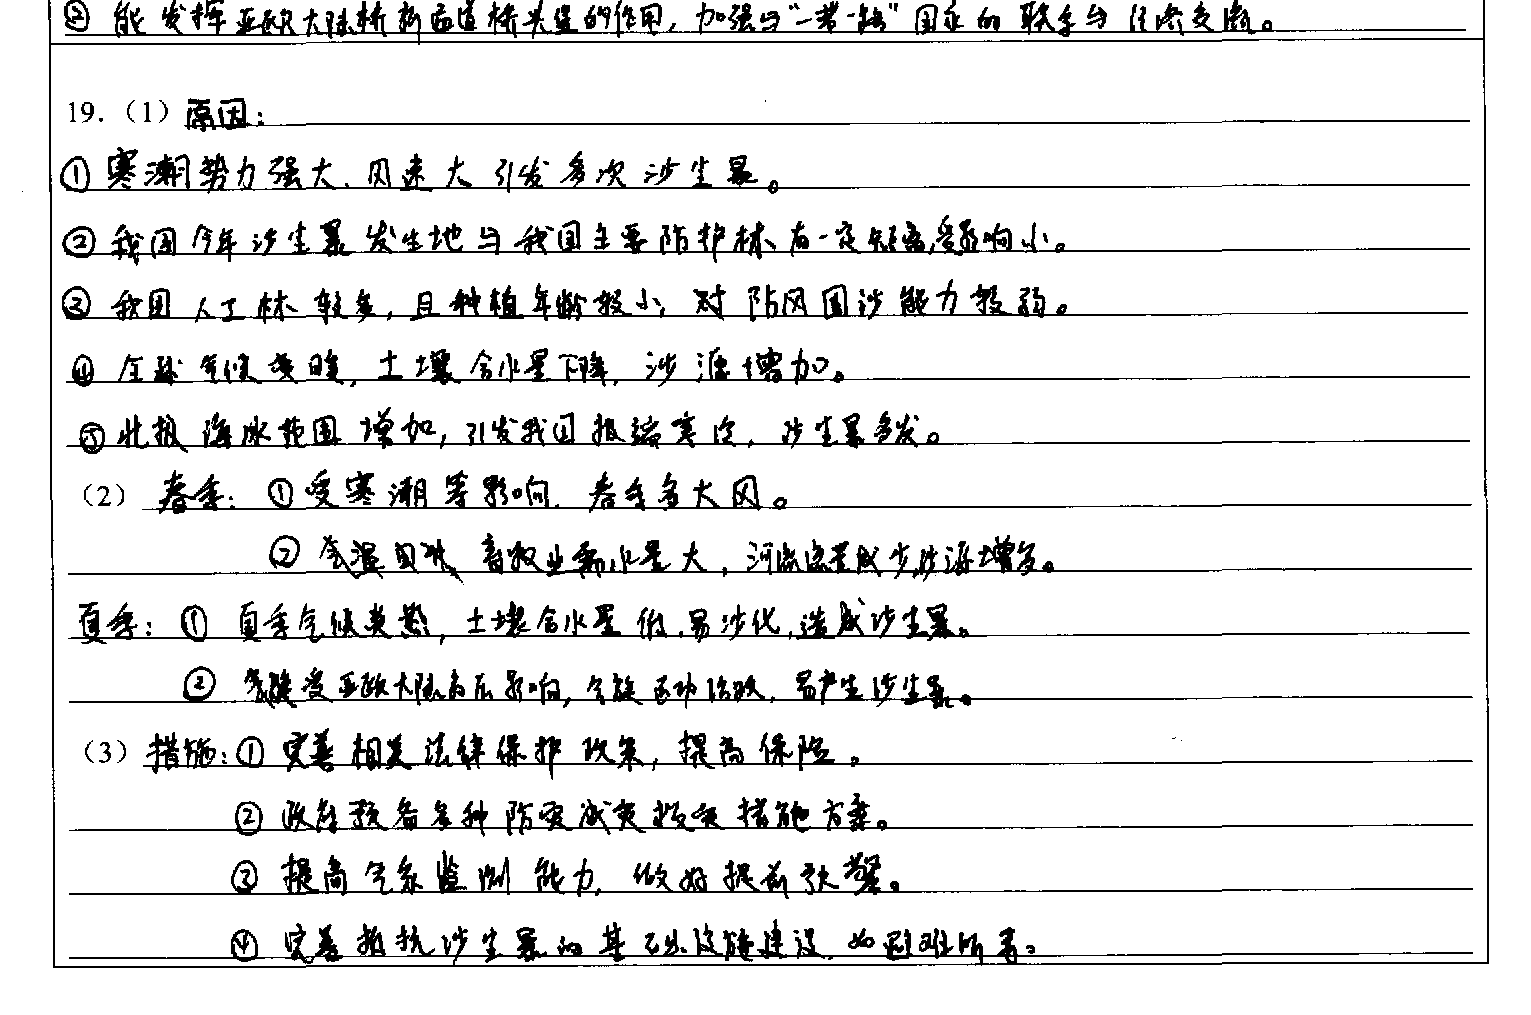 ② 能发挥亚欧大陆桥新通道桥头堡的作用，加强与“一带一路”国家的联系与经济交流。
19.（1）原因：
①寒潮势力强大、风速大 引发多次沙尘暴。
②我国今年沙尘暴发生地与我国主要防护林有一定距离，受影响小。
③我国人工林较多，且种植年龄较小，对防风固沙能力较弱。
④全球气候变暖，土壤含水量下降，沙源增加。
⑤北极海冰范围增加，引发我国极端寒，沙尘暴多发。
（2）春季：①受寒潮等影响，春季多大风。
② 气温回，畜牧业需水量大，河流流量减少，沙源增多。
夏季：① 夏季气候炎热，土壤含水量低，易沙化，造成沙尘暴。
② 受亚欧大陆高压影响，气旋活动活跃，易产生沙尘暴。
（3）措施：①完善相关法律保护政策，提高保险。
②政府预备各种防灾减灾救灾措施方案。
③提高气象监测能力，做好提前预警。
④完善抵抗沙尘暴的基础设施建设，如避难所等。